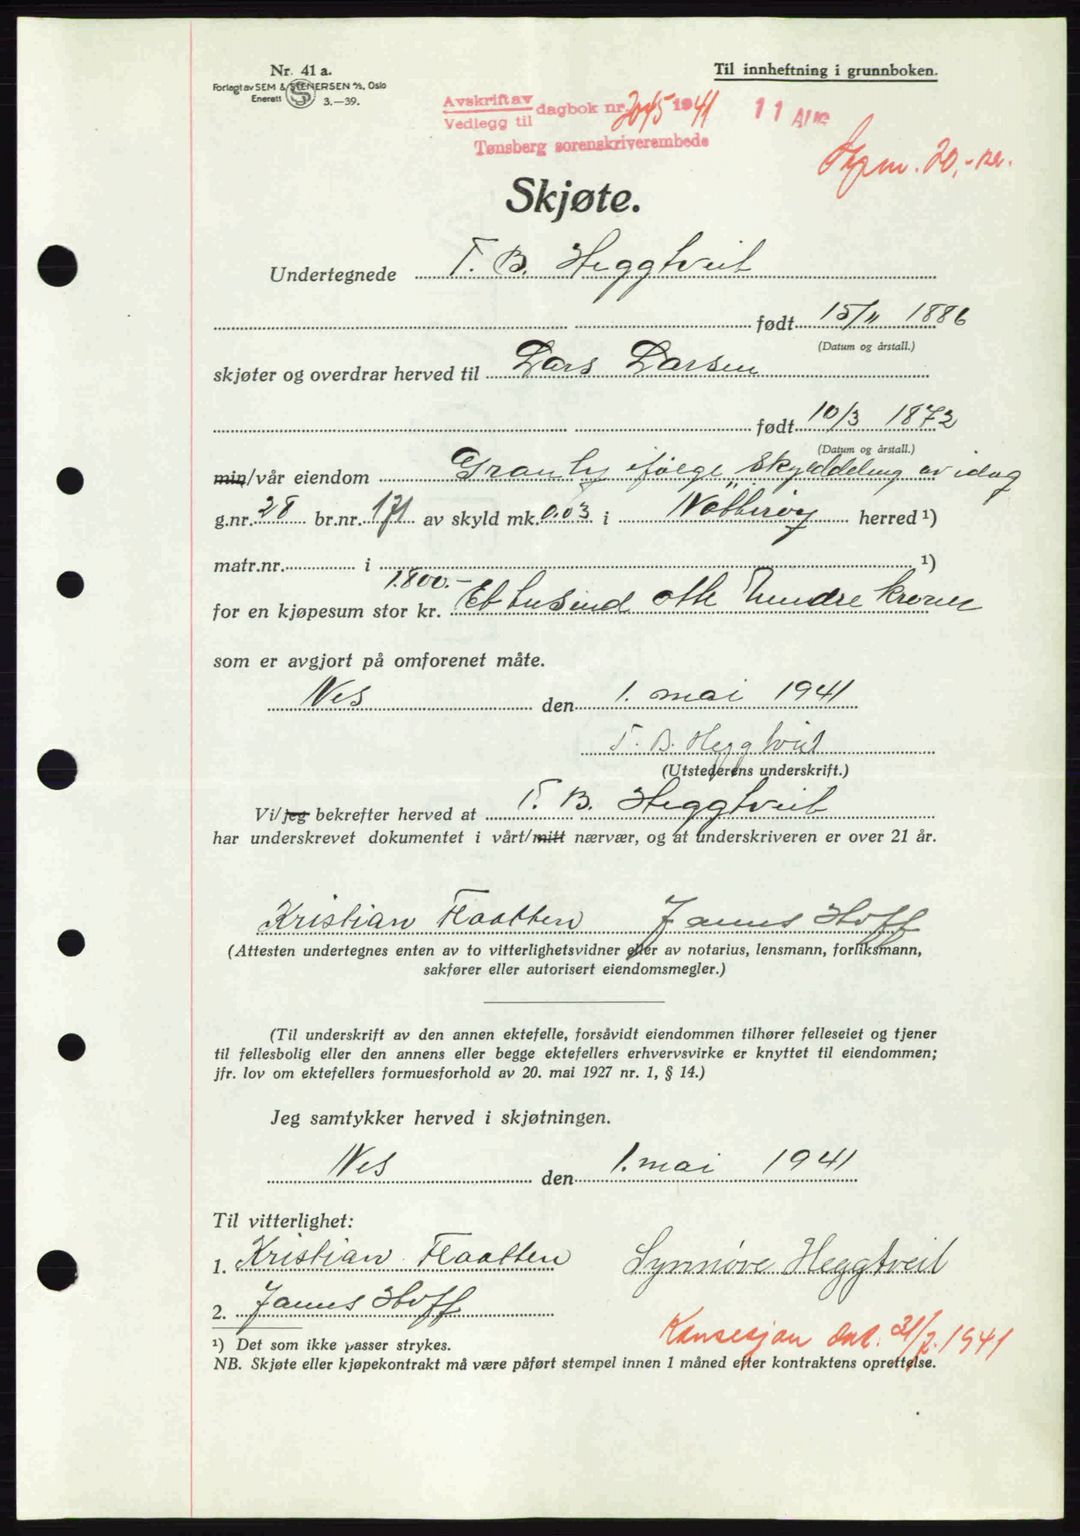 Nr. 41 a.
Forlagt av SEM & STENERSEN A/S, Oslo
Enerett 3.—39.
Til innheftning i grunnboken.
Avskrift av
Vedlegg til dagbok nr. 2045 1941 11 AUG
Tønsberg sorenskriverembede
20,- kr.
Skjøte.
Undertegnede T. B. Heggtveit
født 15/11 1886
(Datum og årstall.)
skjøter og overdrar herved til Lars Larsen
født 10/3 1872
(Datum og årstall.)
min/vår eiendom Granly ifølge skylddeling av idag
g.nr. 28 br.nr. 171 av skyld mk. 0.03 i Nøtterøy herred ¹)
matr.nr. i ¹)
1.800.-
for en kjøpesum stor kr. Et tusind otte hundre kroner
som er avgjort på omforenet måte.
Nes den 1. mai 1941
T. B. Heggtveit
(Utstederens underskrift.)
Vi/jeg bekrefter herved at T. B. Heggtveit
har underskrevet dokumentet i vårt/mitt nærvær, og at underskriveren er over 21 år.
Kristian Flaatten Janus Hoff
(Attesten undertegnes enten av to vitterlighetsvidner eller av notarius, lensmann, forliksmann,
sakfører eller autorisert eiendomsmegler.)
(Til underskrift av den annen ektefelle, forsåvidt eiendommen tilhører felleseiet og tjener
til fellesbolig eller den annens eller begge ektefellers erhvervsvirke er knyttet til eiendommen;
jfr. lov om ektefellers formuesforhold av 20. mai 1927 nr. 1, § 14.)
Jeg samtykker herved i skjøtningen.
Nes den 1. mai 1941
Til vitterlighet:
1. Kristian Flaatten Synnøve Heggtveit
2. Janus Hoff
Konsesjon dat. 31/7. 1941
¹) Det som ikke passer strykes.
NB. Skjøte eller kjøpekontrakt må være påført stempel innen 1 måned efter kontraktens oprettelse.